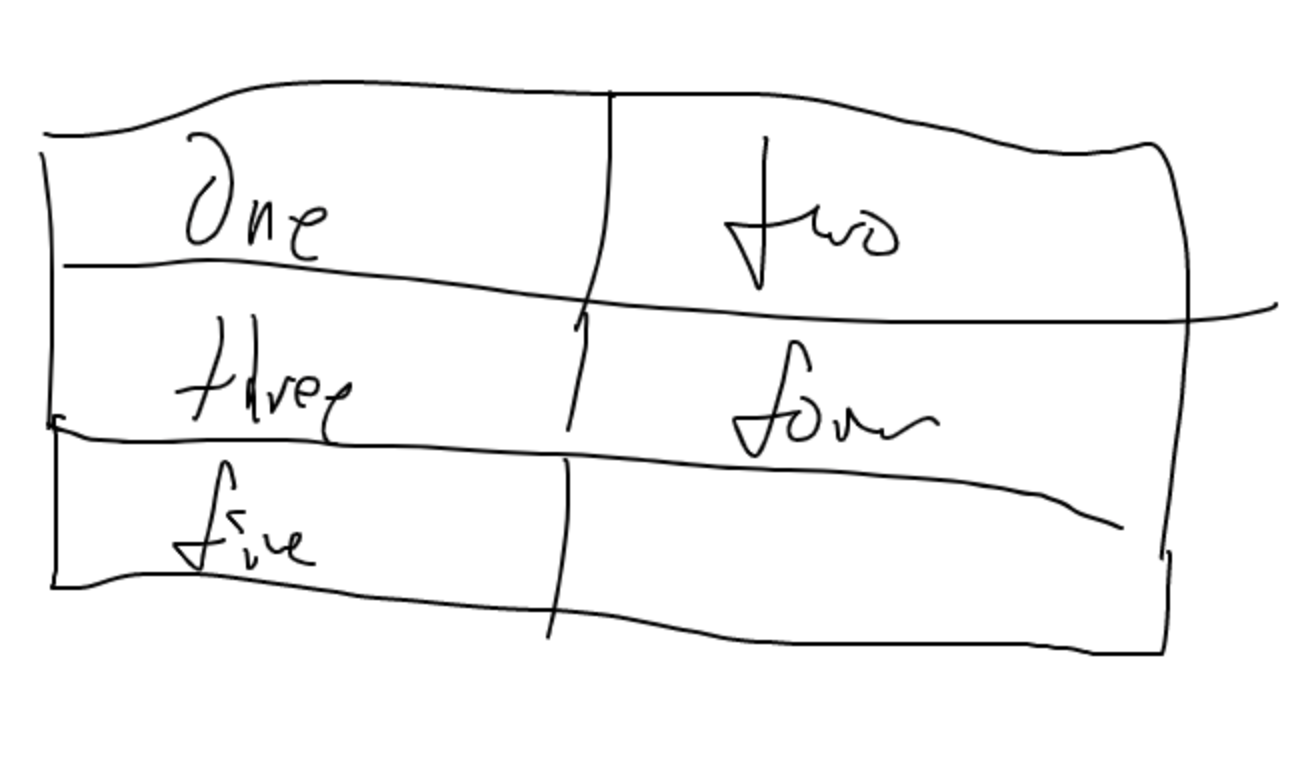 One two
three four
five